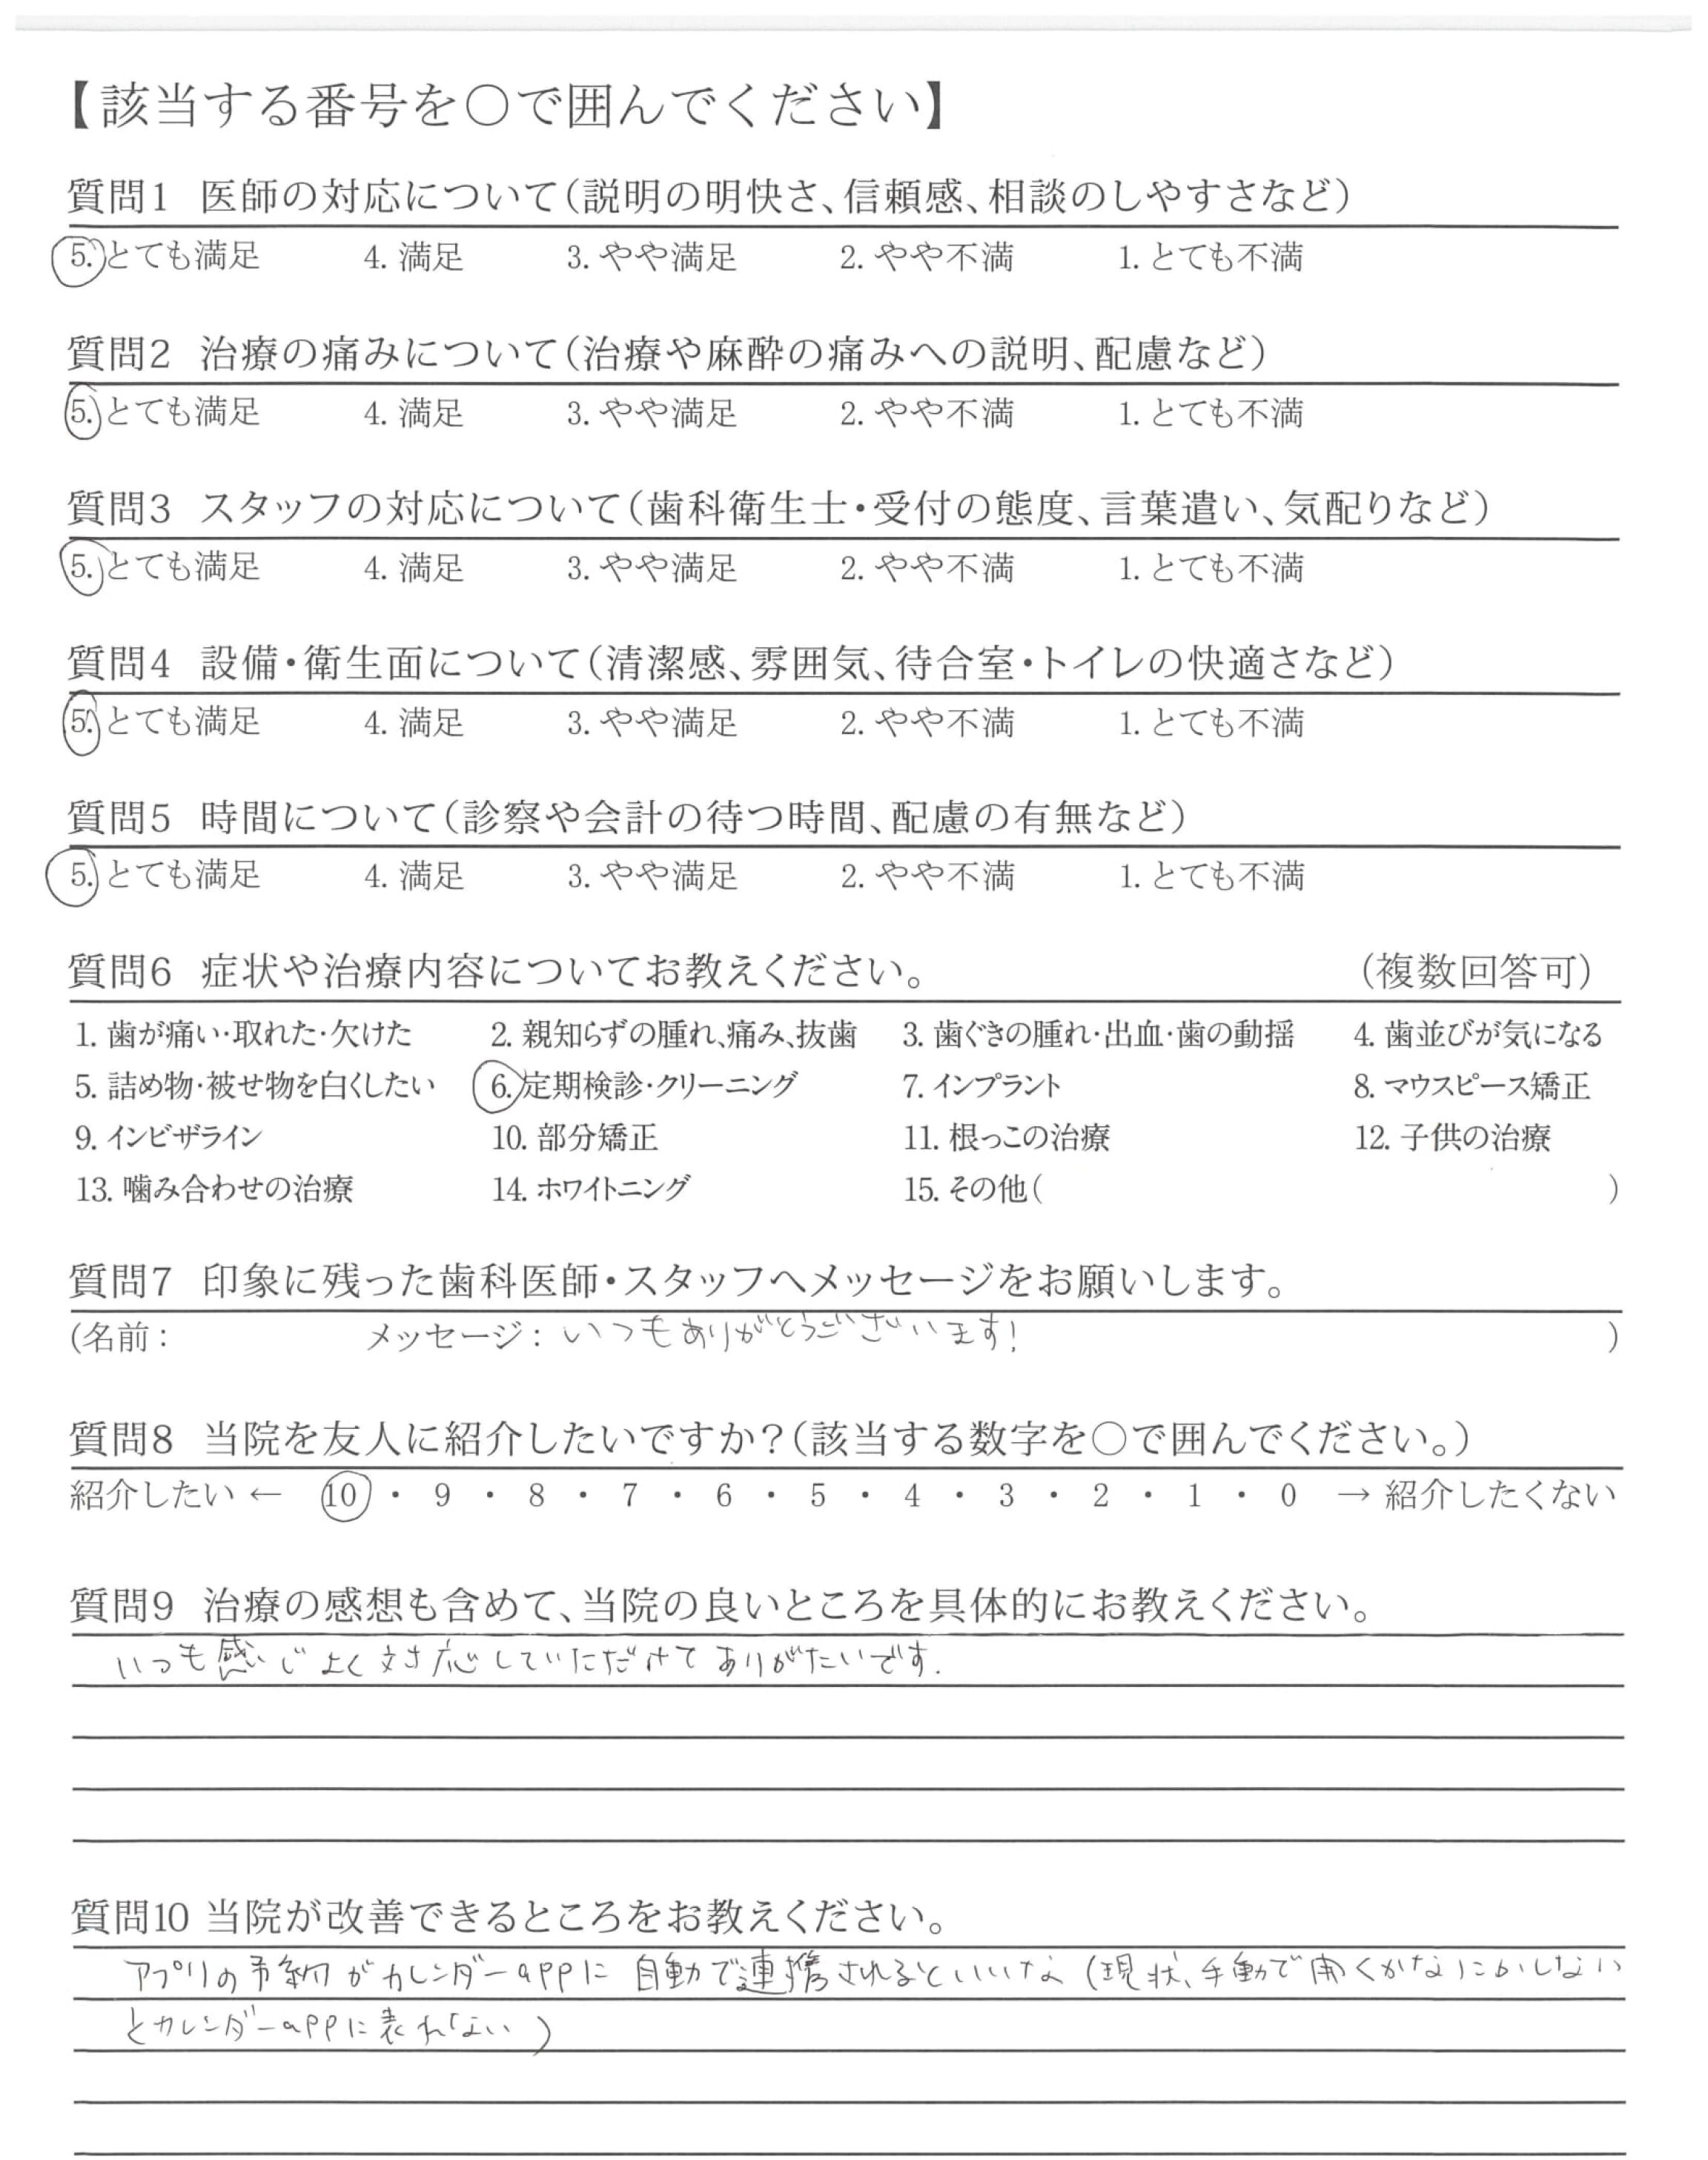 【該当する番号を〇で囲んでください】
質問1 医師の対応について(説明の明快さ、信頼感、相談のしやすさなど)
5. とても満足 4. 満足 3. やや満足 2. やや不満 1. とても不満
質問2 治療の痛みについて(治療や麻酔の痛みへの説明、配慮など)
5. とても満足 4. 満足 3. やや満足 2. やや不満 1. とても不満
質問3 スタッフの対応について(歯科衛生士・受付の態度、言葉遣い、気配りなど)
5. とても満足 4. 満足 3. やや満足 2. やや不満 1. とても不満
質問4 設備・衛生面について(清潔感、雰囲気、待合室・トイレの快適さなど)
5. とても満足 4. 満足 3. やや満足 2. やや不満 1. とても不満
質問5 時間について(診察や会計の待つ時間、配慮の有無など)
5. とても満足 4. 満足 3. やや満足 2. やや不満 1. とても不満
質問6 症状や治療内容についてお教えください。 (複数回答可)
1. 歯が痛い・取れた・欠けた 2. 親知らずの腫れ、痛み、抜歯 3. 歯ぐきの腫れ・出血・歯の動揺 4. 歯並びが気になる
5. 詰め物・被せ物を白くしたい 6. 定期検診・クリーニング 7. インプラント 8. マウスピース矯正
9. インビザライン 10. 部分矯正 11. 根っこの治療 12. 子供の治療
13. 噛み合わせの治療 14. ホワイトニング 15. その他( )
質問7 印象に残った歯科医師・スタッフへメッセージをお願いします。
(名前: メッセージ: いつもありがとうございます! )
質問8 当院を友人に紹介したいですか?(該当する数字を〇で囲んでください。)
紹介したい ← 10 ・ 9 ・ 8 ・ 7 ・ 6 ・ 5 ・ 4 ・ 3 ・ 2 ・ 1 ・ 0 → 紹介したくない
質問9 治療の感想も含めて、当院の良いところを具体的にお教えください。
いつも感じよく対応していただけてありがたいです.
質問10 当院が改善できるところをお教えください。
アプリの予約がカレンダーappに自動で連携されるといいな(現状、手動で開くかなにかしない
とカレンダーappに表れない)